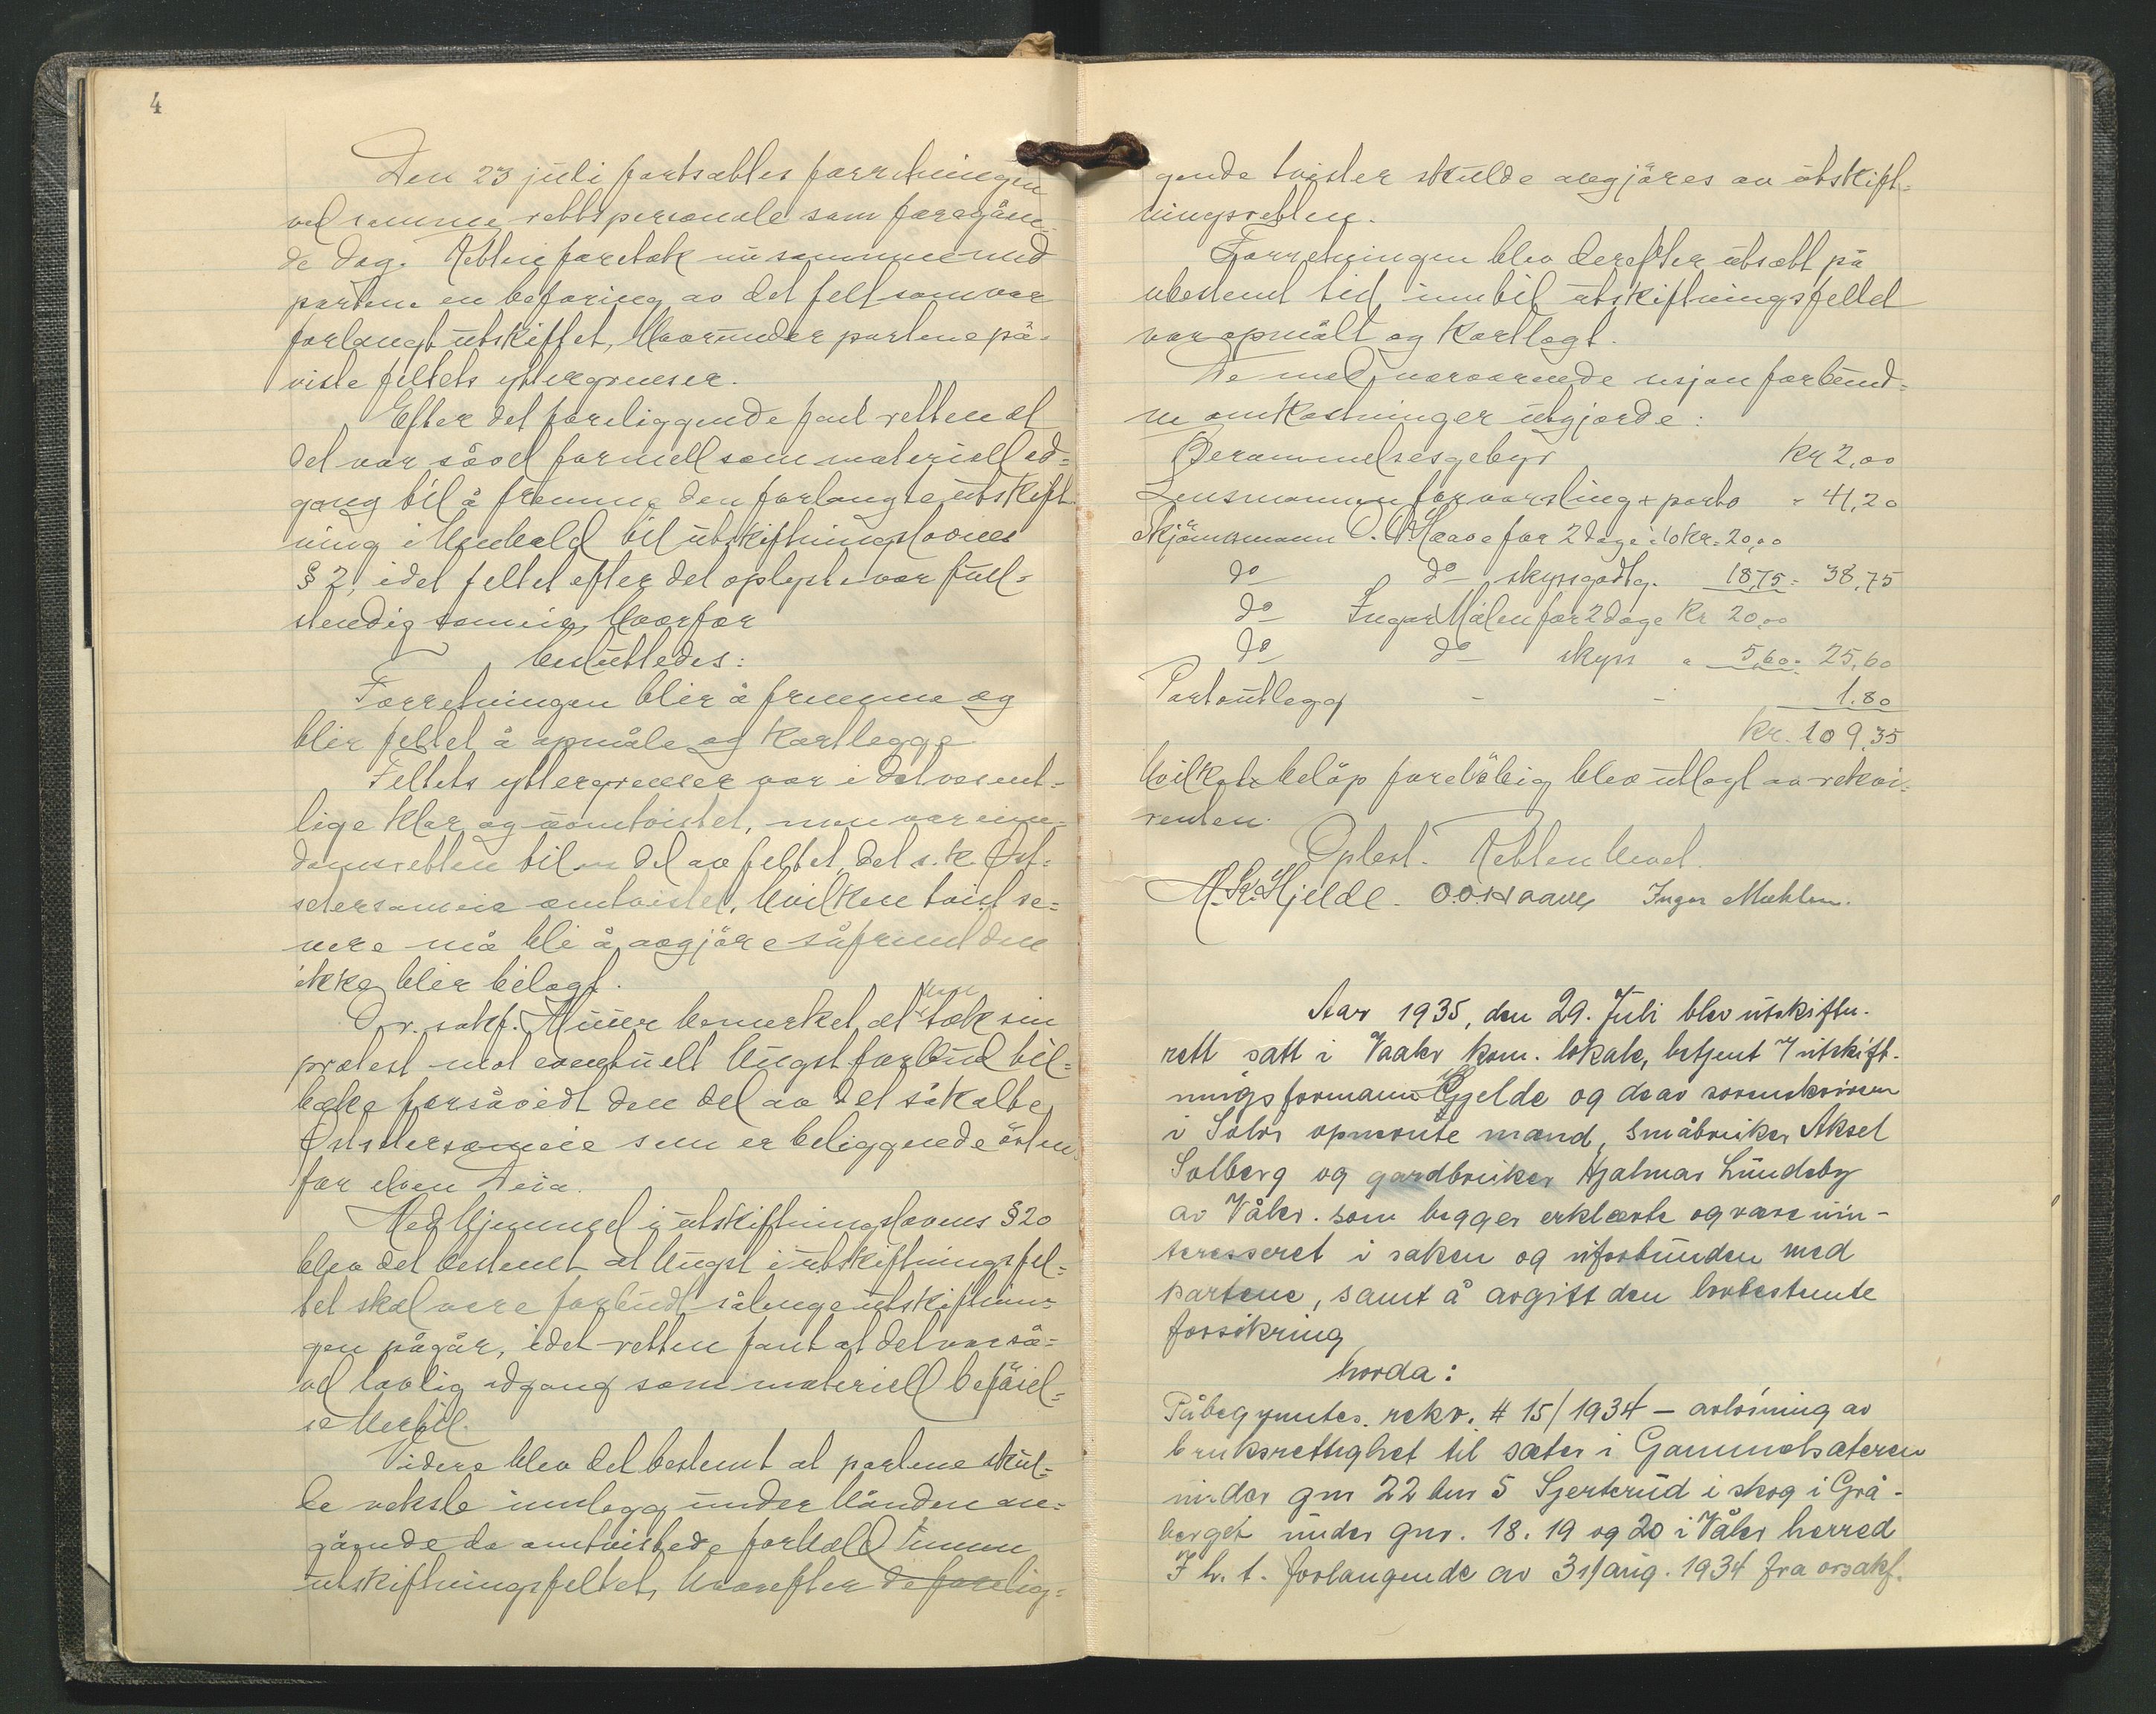 4
Den 23 juli fortsattes forretningen
ved samme rettspersonale som foregåen-
de dag. Retten foretok nu sammen med
partene en befaring av det felt som var
forlangt utskiftet, hvorunder partene på-
viste feltets yttergrenser.
Efter det foreliggende fant retten at
det var såvel formell som materiell ad-
gang til å fremme den forlangte utskift-
ning i henhold til utskiftningslovens
§ 2, idet feltet efter det oplyste var full-
stendig sameie, hvorfor
besluttedes:
Forretningen blir å fremme og
blir feltet å opmåle og kartlegge
Feltets yttergrenser var i det vesent-
lige klar og uomtvistet, men var eien-
domsretten til en del av feltet, det s.k. Øst-
setersameie omtvistet, hvilken tvist se-
nere må bli å avgjøre såfremt den
ikke blir bilagt.
O.r. sakf. bemerket at han tok sin
protest mot eventuelt hugstforbud til-
bake forsåvidt den del av det såkalte
Østsetersameie som er beliggende østen-
for elven Deia.
Med hjemmel i utskiftningslovens § 20
blev det bestemt at hugst i utskiftningsfel-
tet skal være forbudt sålenge utskiftnin-
gen pågår, idet retten fant at det var så-
vel lovlig adgang som materiell beføiel-
se hertil.
Videre blev det bestemt at partene skul-
le veksle innlegg under hånden an-
gående de omtvistede forhold innen
utskiftningsfeltet, hvorefter de forelig-
gende tvister skulde avgjöres av utskift-
ningsretten.
Forretningen blev derefter utsatt på
ubestemt tid inntil utskiftningsfeltet
var opmålt og kartlagt.
De med nærværende sesjon forbund-
ne omkostninger utgjorde:
Berammelsesgebyr kr 2,00
Lensmannen for varsling + porto " 41,20
Skjönnsmann O. Haave for 2 dage à 10 kr = 20,00
do do skyssgodtg. 18,75 = 38,75
do Ingar Mælen for 2 dage kr 20,00
do do skyss " 5,60 = 25,60
Portoutlegg - - 1.80
kr. 109,35
hvilket beløp foreløbig blev utlagt av rekvi-
renten.
Oplest. Retten hevet.
M. Kr. Hjelde. O.O. Haave Ingar Mæhlen.
Aar 1935, den 29. Juli blev utskiftn.
rett satt i Vaaler kom. lokale, betjent v/ utskift-
ningsformann Hjelde og de av sorenskriveren
i Solør opnevnte mænd, Småbruker Aksel
Solberg og gardbruker Hjalmar Lundeby
av Våler. som begger erklærte og være uin-
teressert i saken og uforbunden med
partene, samt å avgitt den lovbestemte
forsikring
hvorda:
Påbegyntes. rekv. # 15/1934 – avløsning av
bruksrettighet til sæter i Gammelsæteren
under gnr 22 bnr 5 Gjerterud i skog i Grå-
berget under gnr. 18. 19 og 20 i Våler herred
I h. t. forlangende av 31/aug. 1934 fra orsakf.